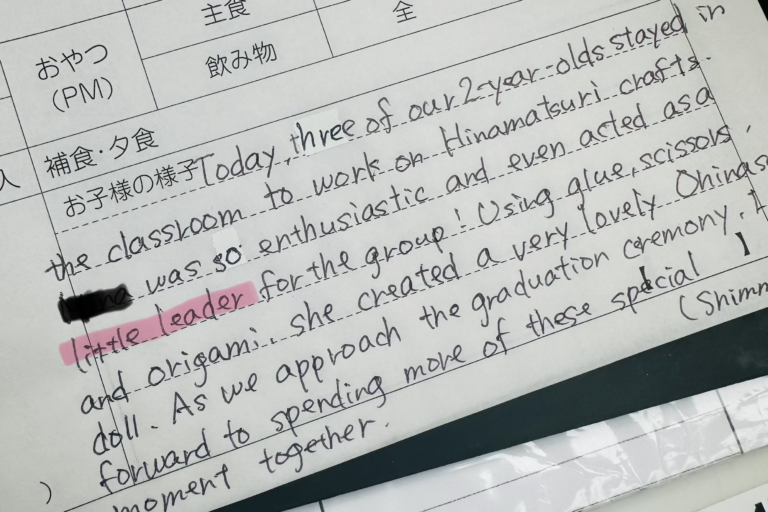 主食
全
おやつ
(PM)
飲み物
補食・夕食
人
お子様の様子 Today, three of our 2-year-olds stayed in
the classroom to work on Hinamatsuri crafts.
was so enthusiastic and even acted as a
little leader for the group! Using glue, scissors,
and origami, she created a very lovely Ohinasa
doll. As we approach the graduation ceremony, I
forward to spending more of these special
moment together.
(Shimm
)